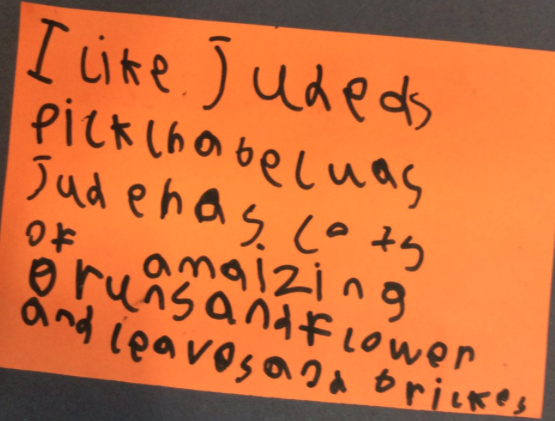 I like Judeds
picklhabeluas
Jude has lots
of amaizing
Bruns and flower
and leaves and brickes